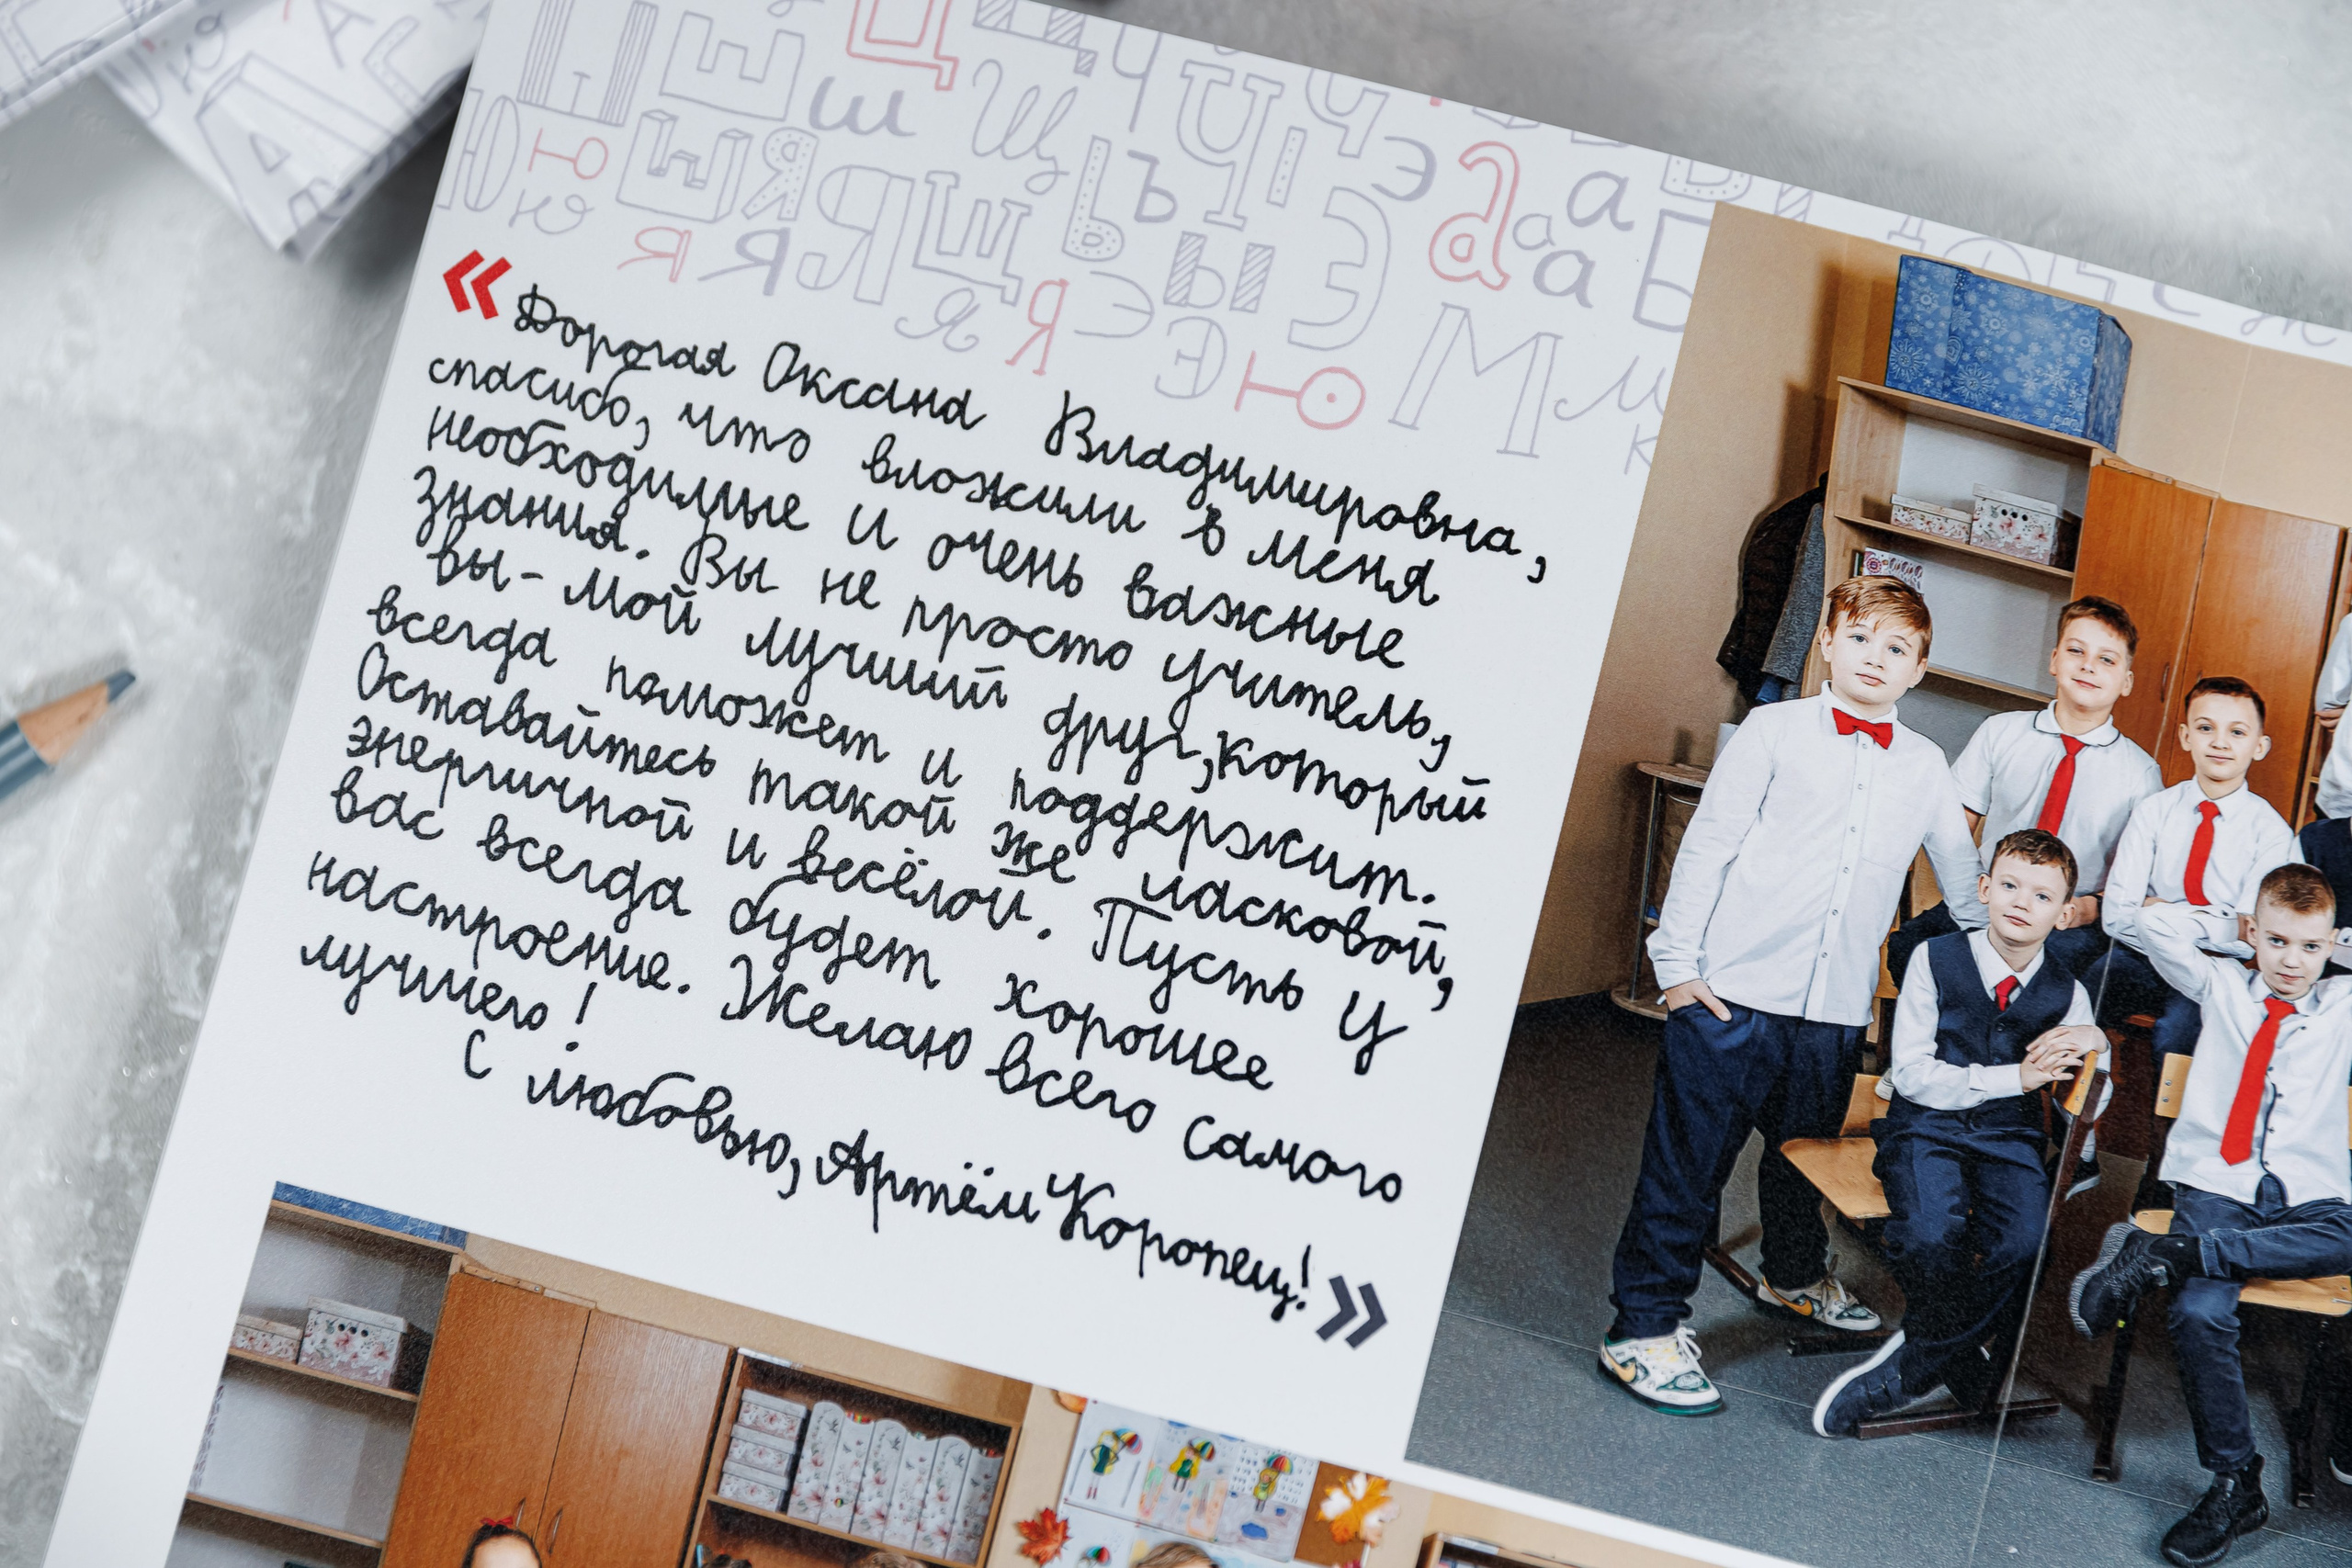 «Дорогая Оксана Владимировна,
спасибо, что вложили в меня
необходимые и очень важные
знания. Вы не просто учитель,
вы - мой лучший друг, который
всегда поможет и поддержит.
Оставайтесь такой же ласковой,
энергичной и весёлой. Пусть у
вас всегда будет хорошее
настроение. Желаю всего самого
лучшего!
С любовью, Артём Коропец!»